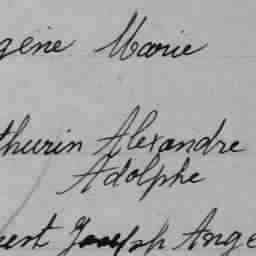 gène Marie
thurin Alexandre
Adolphe
Joseph Ange